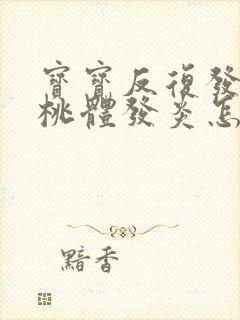 寶寶反復發
桃體發炎怎
黯香